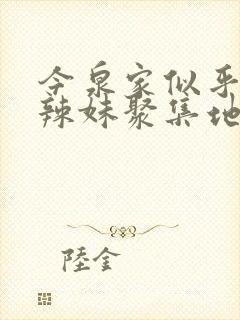 今泉家似乎
辣妹聚集地
陸金